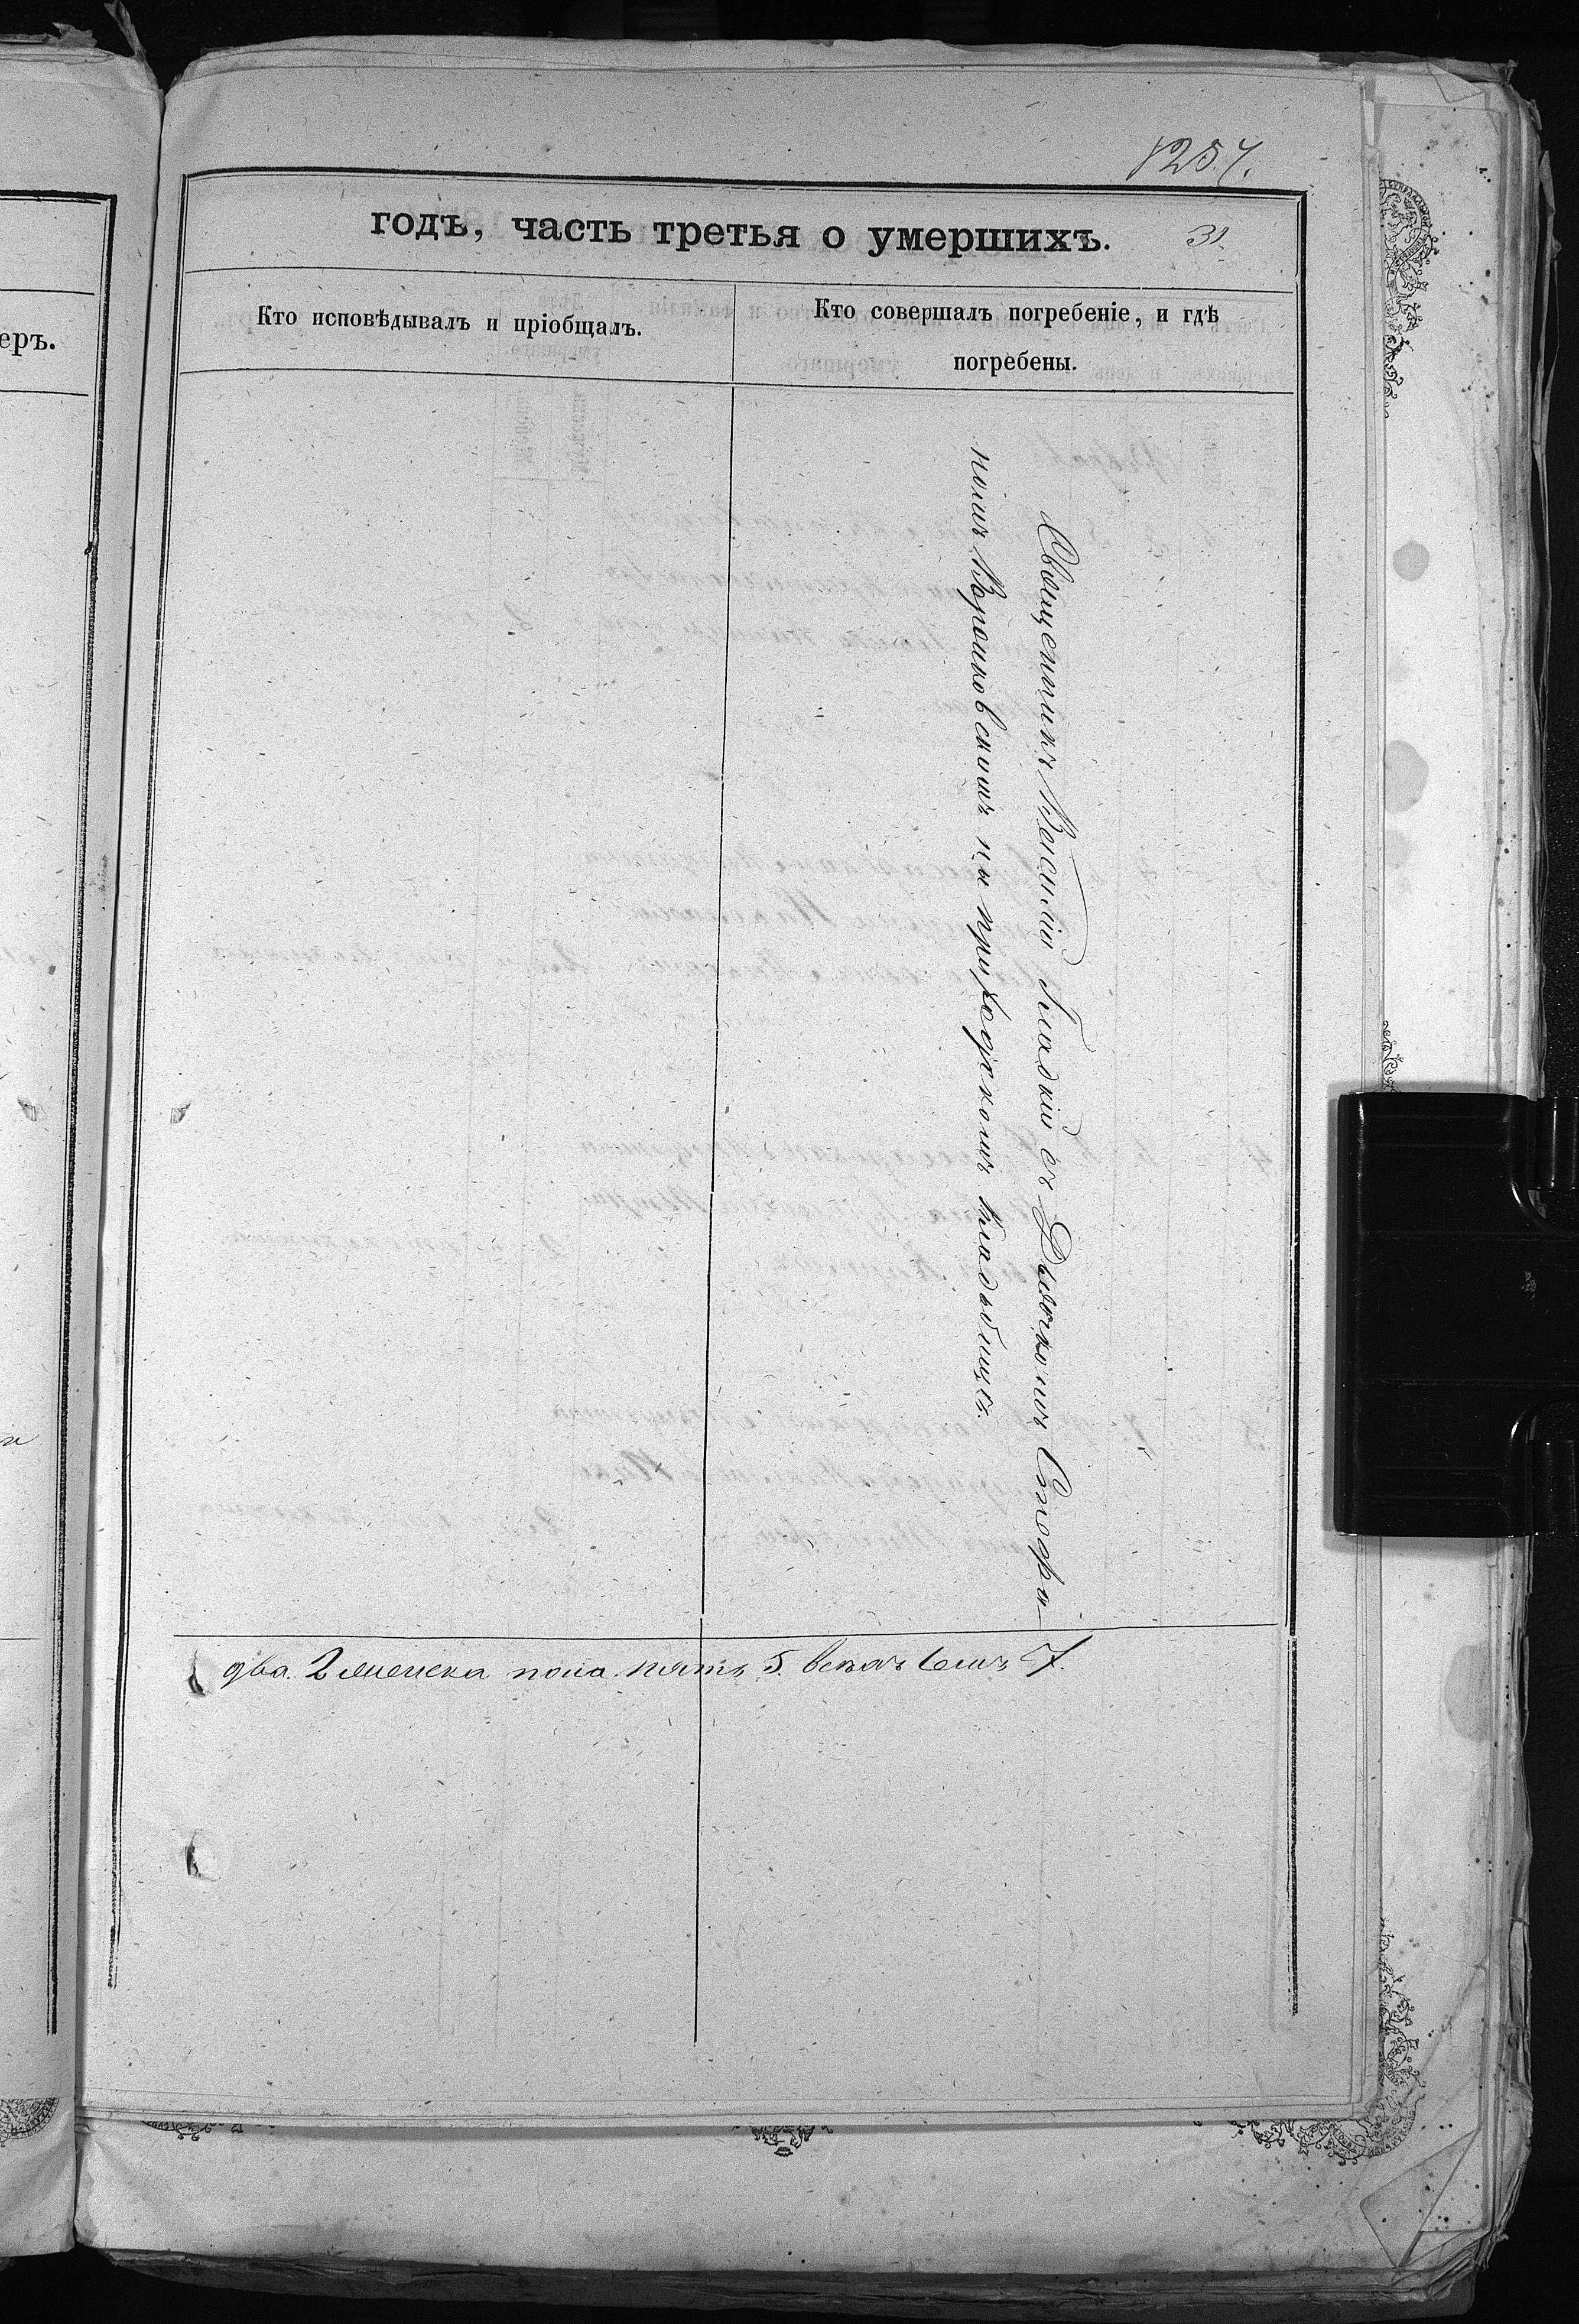 1257.
годъ, часть третья о умершихъ. 31.
еръ.
Кто исповѣдывалъ и пріобщалъ.
Кто совершалъ погребеніе, и гдѣ
погребены.
Священникъ Василій Гладкій съ Дьячкомъ
номъ на приходскомъ кладбищѣ.
два 2 женска пола пять 5. всѣхъ семь 7.